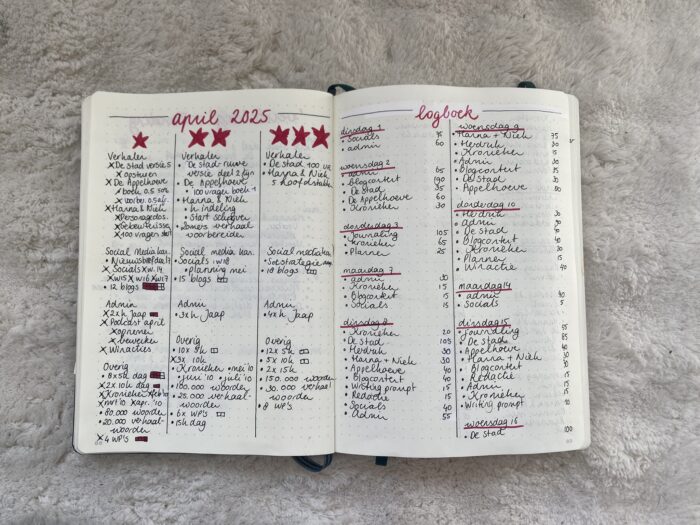 april 2025
Verhalen
x De stad versie 5
x opsturen
x De Appelhoeve
x boek 0.5 50%
x Hanna & Niek
x Personagedos.
x Gebeurtenissen
x 100 vragen start
Social Media kan.
x Socials w.14
x w15 x w16 x w17
• 12 blogs
Admin
x 2x h Jaap
x Podcast april
x opnemen
x bewerken
x Winacties
Overig
• 8x 5h dag
x 2x 10h dag
• 80.000 woorden
• 20.000 verhaal-
woorden
x 4 WP's
Verhalen
• De stad-ruwe
versie deel 2 fijn
• De Appelhoeve
• 100 vragen boek 1
• Hanna & Niek
• h indeling
• start schrijven
• Somers verhaal
voorbereiden
Social media kan.
• Socials w18
• planning mei
• 15 blogs
Admin
• 3x h Jaap
Overig
• 10x 5h
x 3x 10h
• Kronieken • mei '10
• juni '10 • juli '10
• 100.000 woorden
• 25.000 verhaal-
woorden
• 6x WP's
• 15h dag
Verhalen
• De stad 100 uur
• Hanna & Niek
5 hoofdstukken
Social media kan.
• 18 blogs
Admin
• 4x h Jaap
Overig
• 12x 5h
• 5x 10h
• 2x 15h
• 150.000 woorden
• 30.000 verhaal-
woorden
• 8 WP's
logboek
dinsdag 1
• Socials 75
• admin 60
woensdag 2
• admin 65
• Blogcontent 190
• De Stad 35
• De Appelhoeve 60
• Kronieken 30
donderdag 3
• Journaling 105
• Kronieken 65
• Planner 25
maandag 7
• admin 30
• Kronieken 15
• Blogcontent 15
• Socials 15
dinsdag 8
• Kronieken 20
• De stad 105
• Hedruk 30
• Hanna + Niek 30
• Appelhoeve 40
• Blogcontent 40
• Writing prompt 15
• Redactie 15
• Socials 40
• Admin 55
woensdag 9
• Hanna + Niek 75
• Herdruk 30
• Kronieken 15
• Admin 30
• Blogcontent
• De Stad 30
• Appelhoeve
donderdag 10
• Herdruk
• admin
• De stad
• Blogcontent
• Kronieken
• Planner
• Winactie 40
maandag 14
• admin 40
• Socials 5
dinsdag 15
• Journaling 55
• De stad 85
• Appelhoeve 40
• Hanna + Niek 30
• Blogcontent
• Redactie
• Admin
• Kronieken
• Writing prompt
woensdag 16
• De stad 100